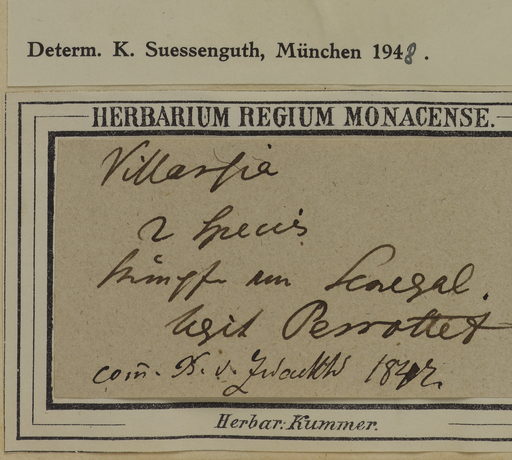 Determ. K. Suessenguth, München 1948.
HERBARIUM REGIUM MONACENSE.
Villarsia
2 Species
Sümpfe am Senegal.
legit Perrottet
com̄. D. v. 1842.
Herbar. Kummer.